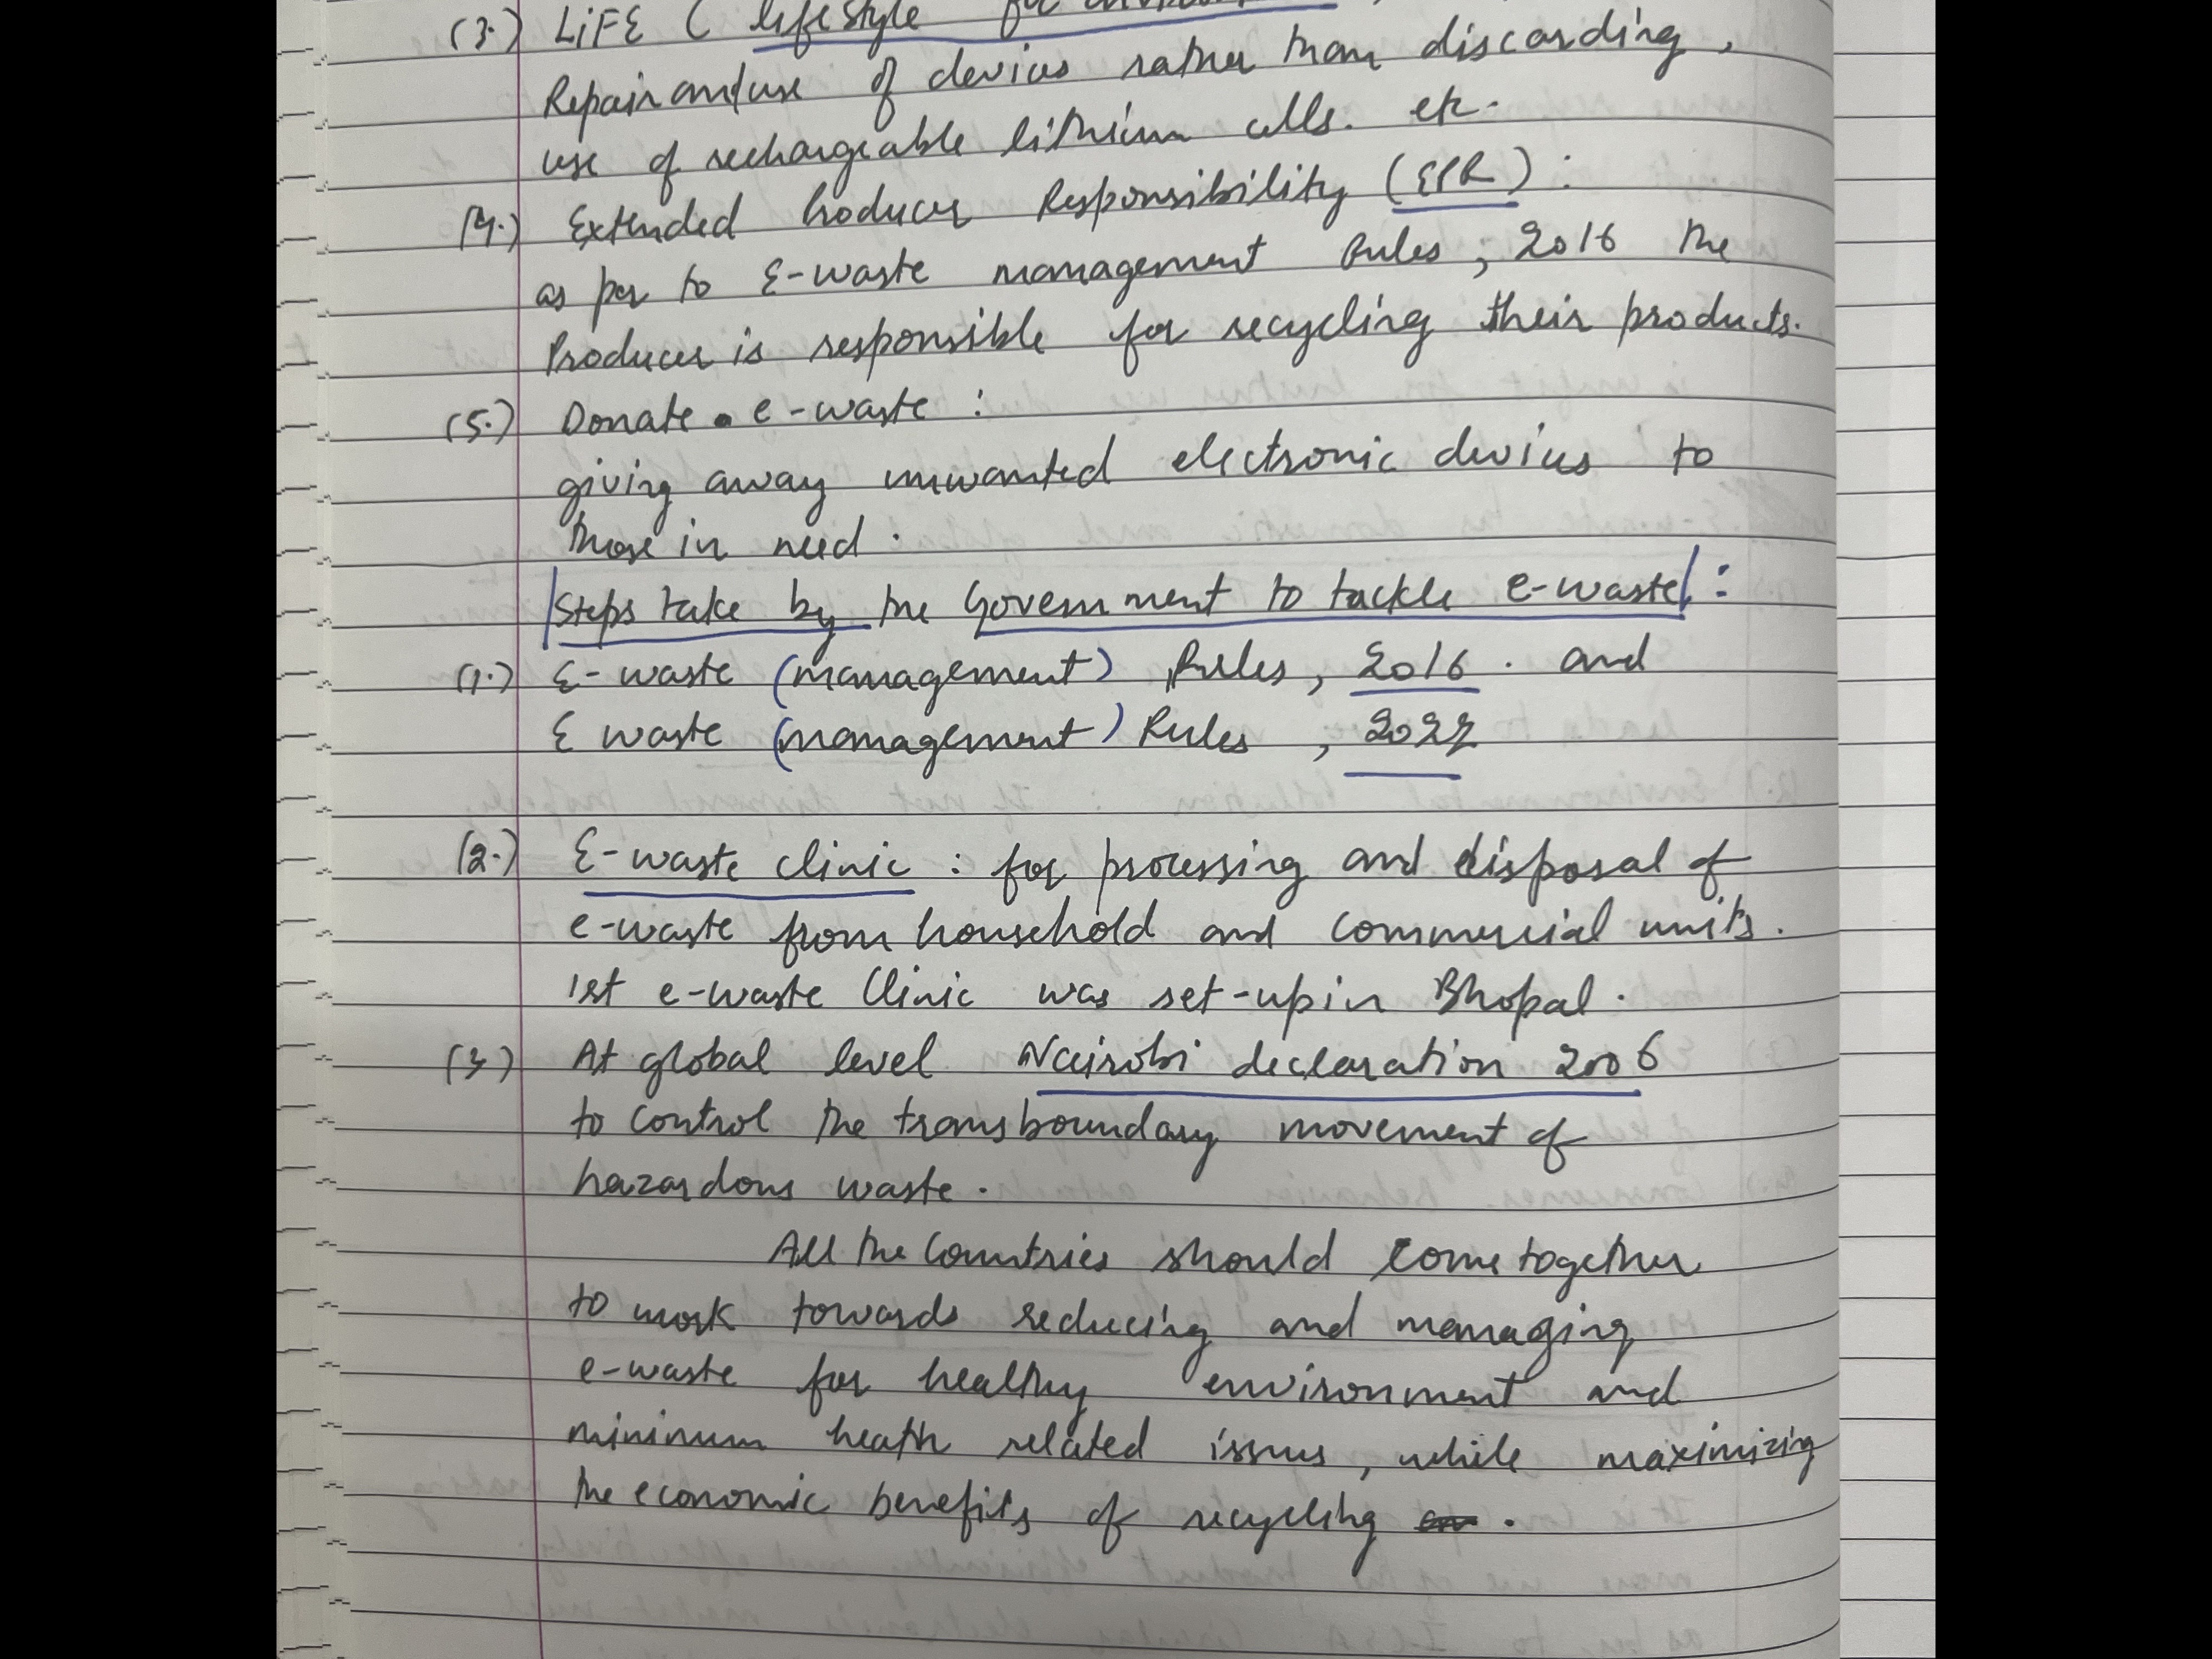 (3.) LiFE ( lifestyle for
Repair and use of devices rather than discarding,
use of rechargeable lithium cells. etc.
(4.) Extended Producer Responsibility (EPR) :
as per to E-waste management Rules, 2016 the
Producer is responsible for recycling their products.
(5.) Donate e-waste :
giving away unwanted electronic devices to
those in need.
Steps take by the Government to tackle e-waste :
(1.) E-waste (management) Rules, 2016. and
E waste (management) Rules, 2022
(2.) E-waste clinic : for processing and disposal of
e-waste from household and commercial units.
1st e-waste Clinic was set-up in Bhopal.
(3) At global level Nairobi declaration 2006
to control the transboundary movement of
hazardous waste.
All the Countries should come together
to work towards reducing and managing
e-waste for healthy environment and
mininum heath related issues, while maximizing
the economic benefits of recycling.